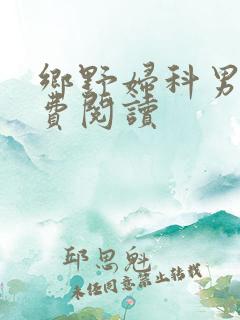 鄉野婦科男
費閱讀
邱思魁
未经同意禁止转载